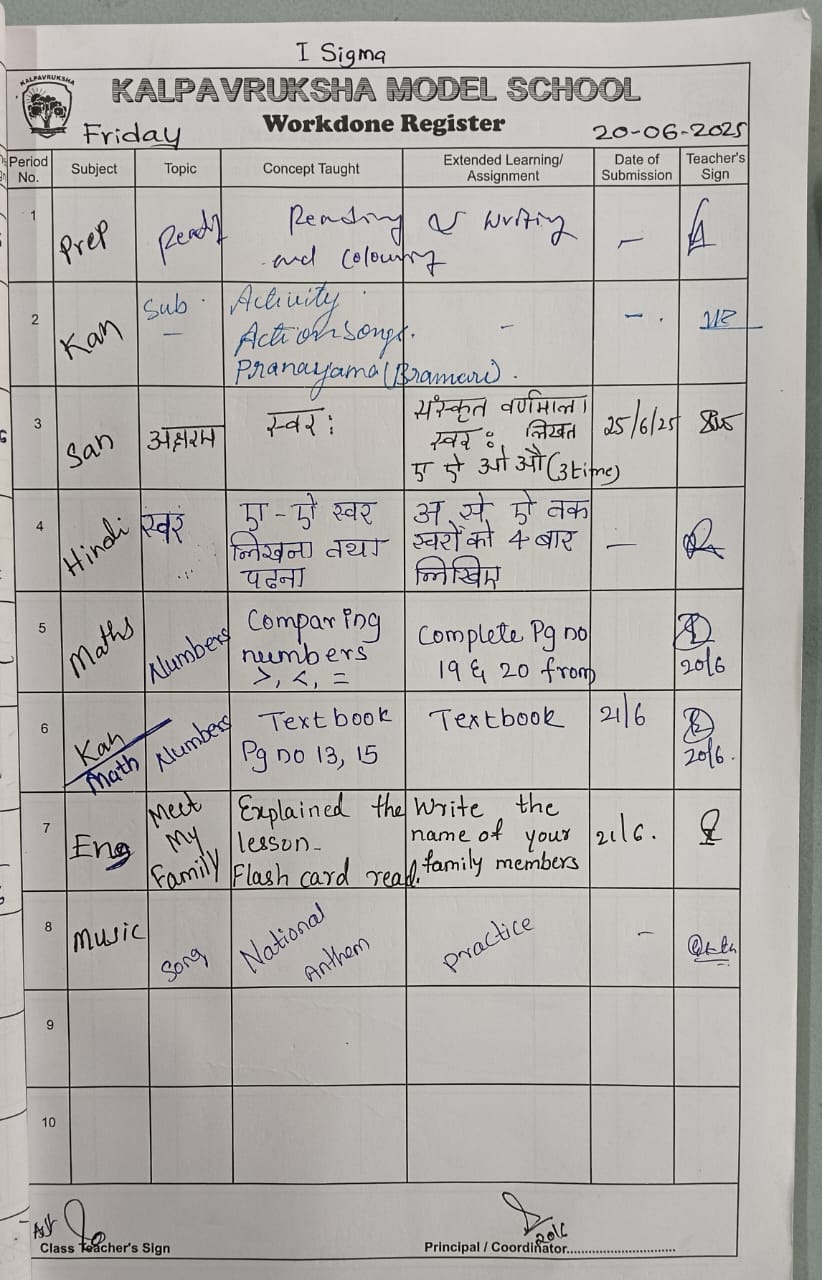 I Sigma
KALPAVRUKSHA
KALPAVRUKSHA MODEL SCHOOL
Friday Workdone Register 20-06-2025
Period No. Subject Topic Concept Taught Extended Learning/ Assignment Date of Submission Teacher's Sign
1 Prep Ready Reading & writing –
and colouring
2 Kan Sub. – Activity – –.
Action songs.
Pranayama (Bramari).
3 San अक्षरम स्वर: संस्कृत वर्णमाला 25/6/25
स्वर: लिखत
ए ऐ ओ औ (3 time)
4 Hindi स्वर ए-ऐ स्वर अ से ऐ तक –
लिखना तथा स्वरों को 4 बार
पढना लिखिए
5 Maths Numbers Comparing Complete Pg no
numbers 19 & 20 from
>, <, = 20/6
6 Kan Math Numbers Textbook Textbook 21/6
Pg no 13, 15 20/6.
7 Eng Meet My Family Explained the Write the 21/6.
lesson. name of your
Flash card read. family members
8 Music Song National Anthem Practice –
9
10
Class Teacher's Sign Principal / Coordinator 20/6